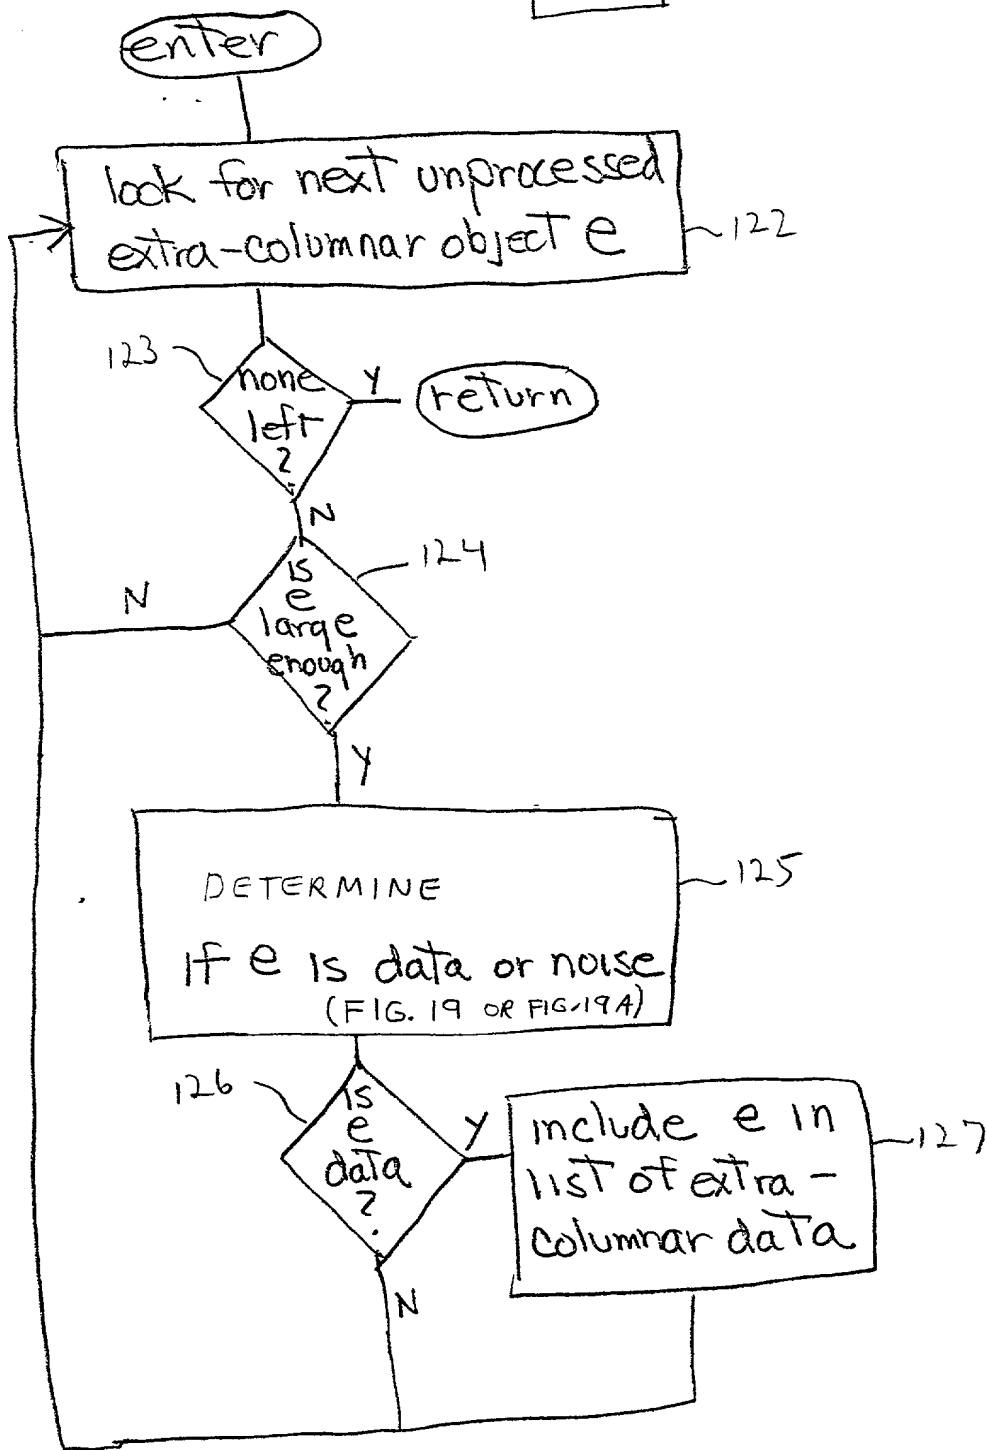 enter
look for next unprocessed
extra-columnar object e
122
123
none
left
?
Y
return
N
124
is
e
large
enough
?
N
Y
125
DETERMINE
if e is data or noise
(FIG. 19 OR FIG. 19A)
126
is
e
data
?
Y
include e in
list of extra-
columnar data
127
N